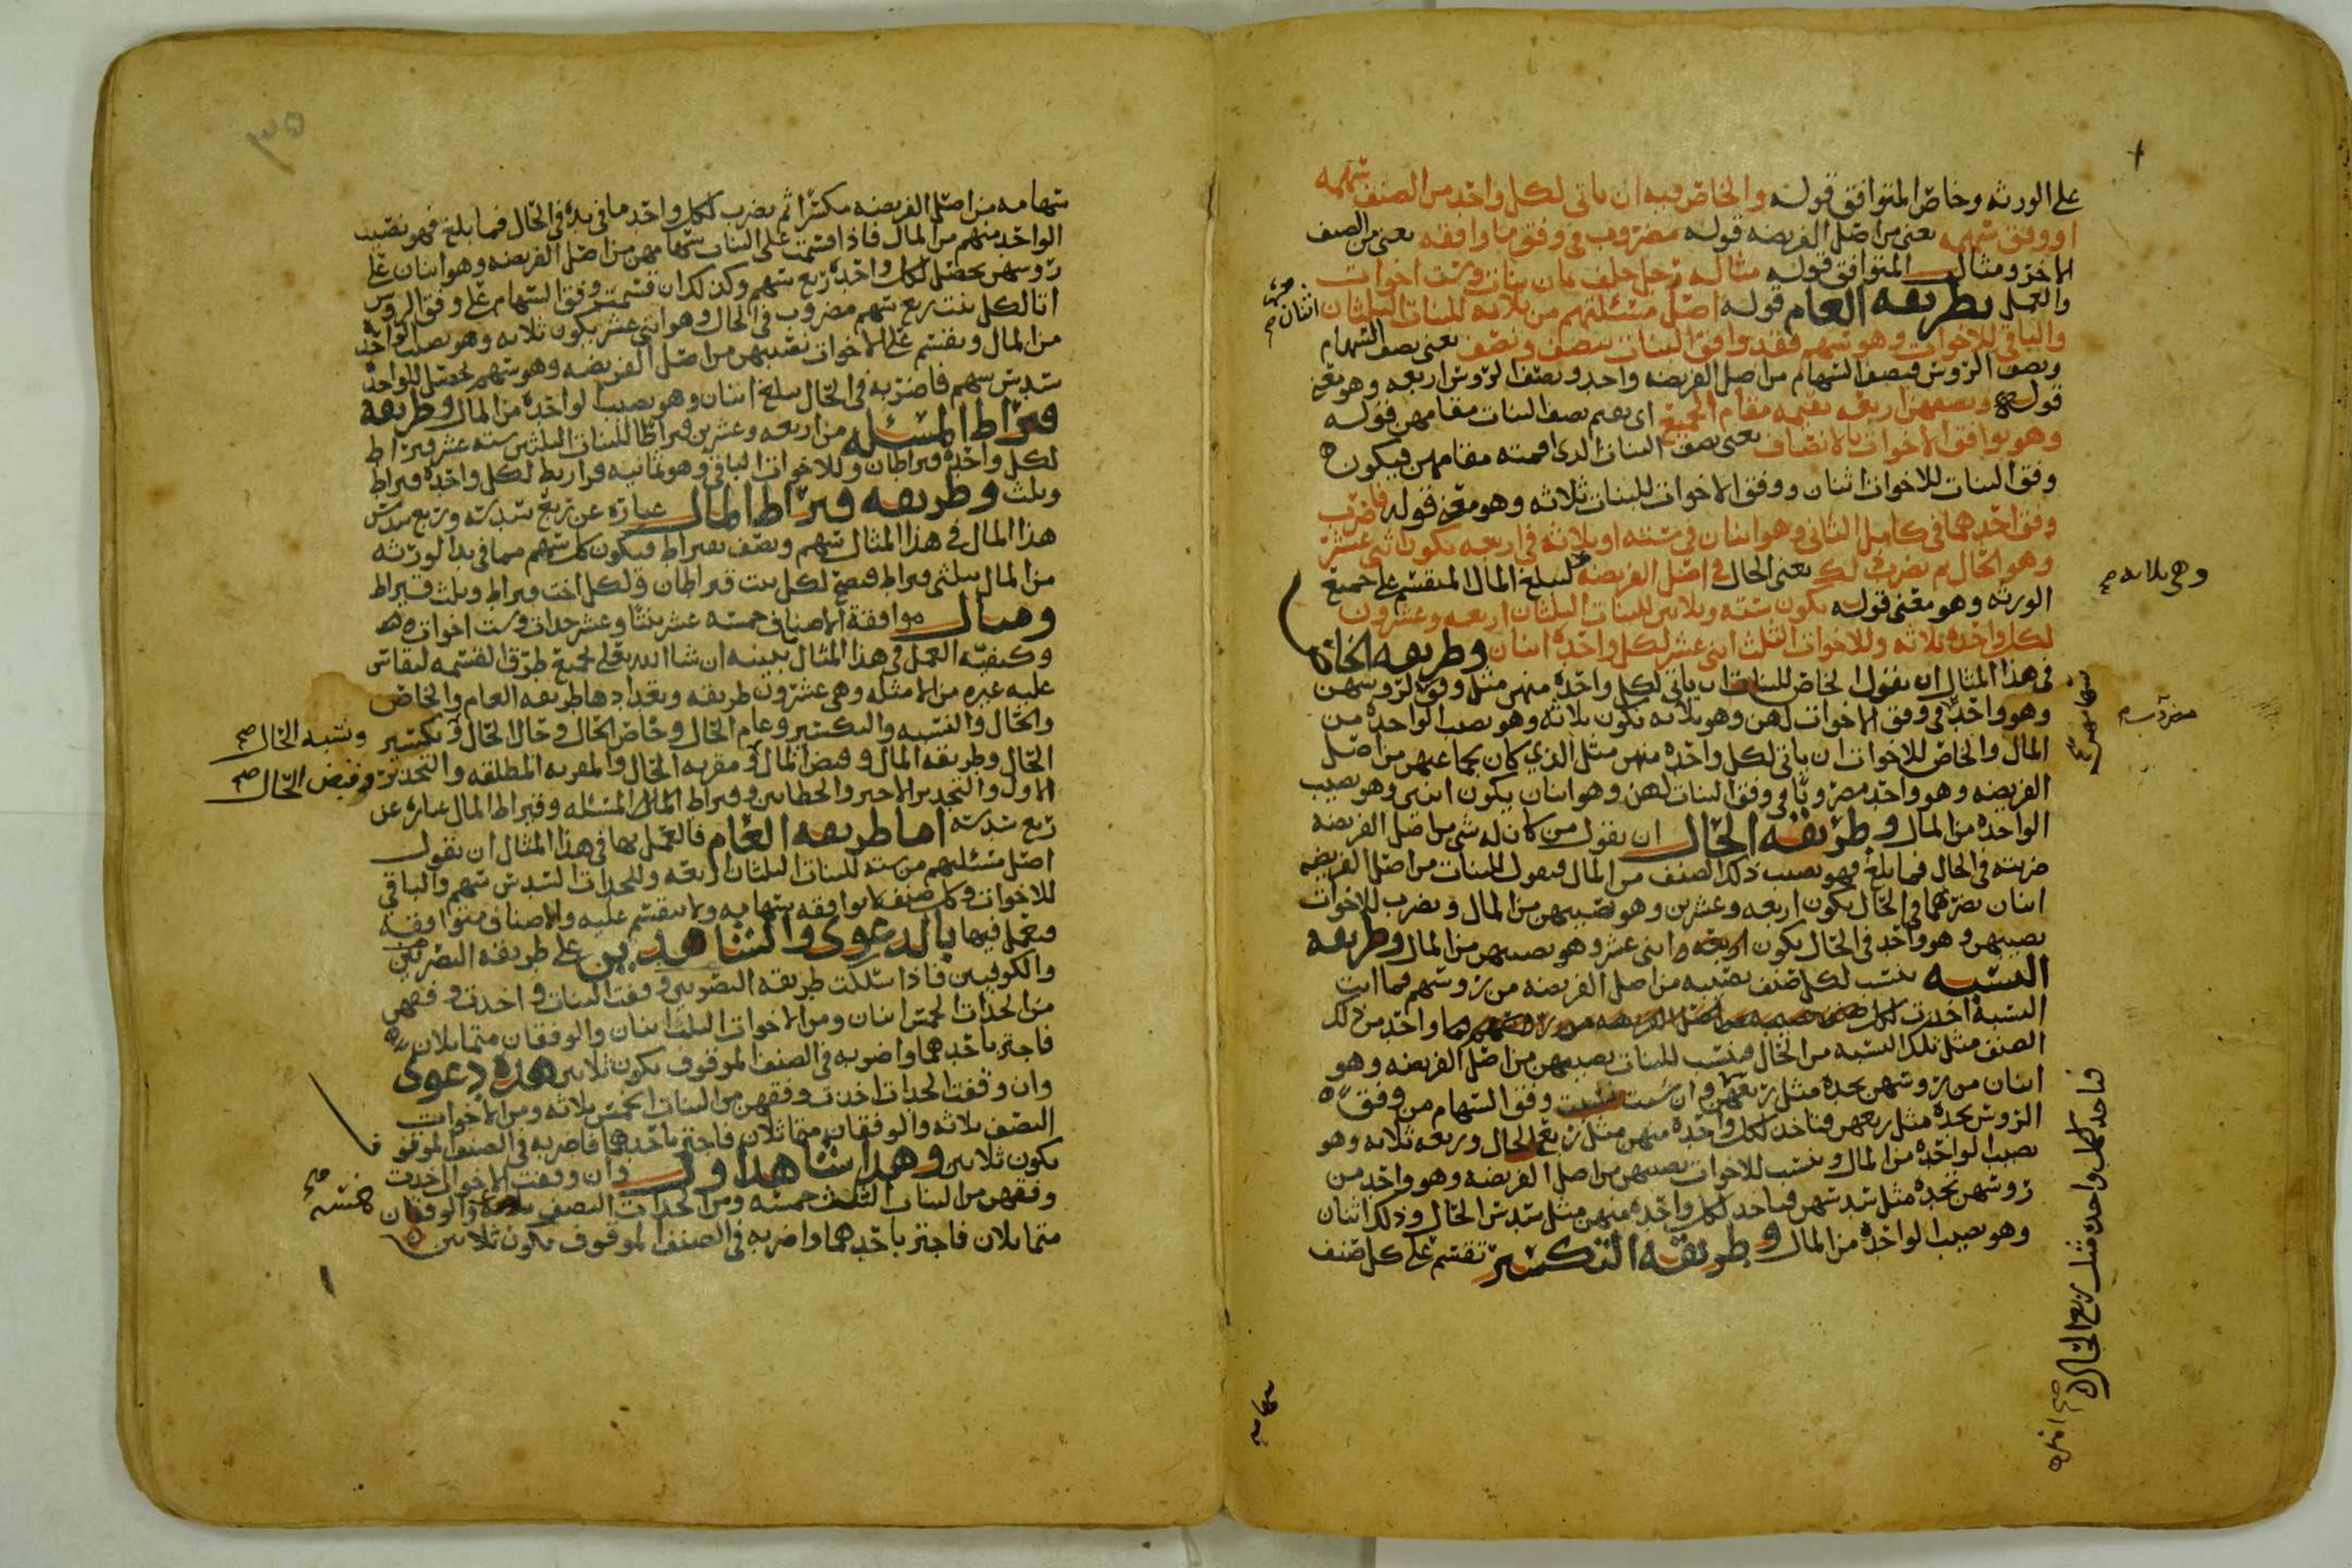 على الورثه وخاص المتوافق قوله والخاص فيه ان ياتى لكل واحد من الصنف سهمه
او وفق سهمه يعنى من اصل الفريضه قوله مضروب فى وفق ما وافقه يعنى من الصنف
الاخر ومثال المتوافق قوله مثاله رجل خلف ثمان بنات وست اخوات
والعمل بطريقه العام قوله اصل مسئلتهم من ثلاثه للبنات الثلثان اثنان صح
والباقى للاخوات وهو سهم فقد وافق البنات بنصف ونصف يعنى نصف السهام
ونصف الروس فنصف السهام من اصل الفريضه واحد ونصف الروس اربعه وهو معنى
قوله ونصفهن اربعه نقيمه مقام الجميع اى نقيم نصف البنات مقامهن قوله
وهو يوافق الاخوات بالانصاف يعنى نصف البنات الذى اقمته مقامهن فيكون
وفق البنات للاخوات اثنان ووفق الاخوات للبنات ثلاثه وهو معنى قوله فاضرب
وفق احدهما فى كامل الثانى وهو اثنان فى سته او ثلاثه فى اربعه يكون اثنى عشر
وهو الحال ثم يضرب لك يعنى الحال فى اصل الفريضه ليبلغ المال المنقسم على جميع
وهى ثلاثه صح
الورثه وهو معنى قوله يكون سته وثلاثين للبنات الثلثان اربعه وعشرون
لكل واحده ثلاثه وللاخوات الثلث اثنى عشر لكل واحده اثنان وطريقه الخاص
فى هذا المثال ان نقول الخاص للبنات ان ياتى لكل واحده منهن مثل وفق لروسهن
سهامهن
وهو واحد فى وفق الاخوات لهن وهو ثلاثه يكون ثلاثه وهو نصيب الواحده من
مضروب
المال والخاص للاخوات ان ياتى لكل واحده منهن مثل الذى كان بجماعتهن من اصل
الفريضه وهو واحد مضروبًا فى وفق البنات لهن وهو اثنان يكون اثنين وهو نصيب
الواحده من المال وطريقه الحال ان نقول من كان له شى من اصل الفريضه
ضربته فى الحال فما بلغ فهو نصيب ذلك الصنف من المال فنقول للبنات من اصل الفريضه
اثنان نضربهما فى الحال يكون اربعه وعشرين وهو نصيبهن من المال ونضرب للاخوات
نصيبهن وهو واحد فى الحال يكون اثنى عشر وهو نصيبهن من المال وطريقه
النسبه ننسب لكل صنف نصيبه من اصل الفريضه من روسهم فما اتت
النسبه اخذت لكل واحد من ذلك
الصنف مثل تلك النسبه من الحال فننسب للبنات نصيبهن من اصل الفريضه وهو
اثنان من روسهن نجده مثل ربعهن وان شئت نسبت وفق السهام من وفق
الروس نجده مثل ربعهن فناخذ لكل واحده منهن مثل ربع الحال وربعه ثلاثه وهو
نصيب الواحده من المال وننسب للاخوات نصيبهن من اصل الفريضه وهو واحد من
روسهن نجده مثل سدسهن فناخذ لكل واحده منهن مثل سدس الحال وذلك اثنان
وهو نصيب الواحده من المال وطريقه التكسير تقسم على كل صنف
فناخذ لكل واحده مثل ربع الحال
سهامه
٣٥
سهامه من اصل الفريضه مكسرا ثم يضرب لكل واحد ما فى يده فى الحال فما بلغ فهو نصيب
الواحد منهم من المال فاذا قسمت على البنات سهامهن من اصل الفريضه وهو اثنان على
روسهن يحصل لكل واحده ربع سهم وكذلك ان قسمت وفق السهام على وفق الروس
اتا لكل بنت ربع سهم مضروب فى الحال وهو اثنى عشر يكون ثلاثه وهو نصيب الواحده
من المال ونقسم على الاخوات نصيبهن من اصل الفريضه وهو سهم يحصل للواحده
سدس سهم فاضربه فى الحال يبلغ اثنان وهو نصيب الواحده من المال وطريقه
قيراط المسئله من اربعه وعشرين قيراطًا للبنات الثلثين سته عشر قيراط
لكل واحده قيراطان وللاخوات الباقى وهو ثمانيه قراريط لكل واحده قيراط
وثلث وطريقه قيراط المال عباره عن ربع سدسه وربع سدس
هذا المال فى هذا المثال سهم ونصف بقيراط فيكون كل سهم مما فى يد الورثه
من المال بثلثى قيراط فيصح لكل بنت قيراطان ولكل اخت قيراط وثلث قيراط
ومثال موافقة الاصناف خمسه عشر بنتًا وعشر جدات وست اخوات
وكيفية العمل فى هذا المثال نبينه ان شا الله تعالى لجميع طرق القسمه ليقاس
عليه غيره من الامثله وهى عشرون طريقه وتعدادها طريقه العام والخاص
والحال والنسبه والتكسير وعام الحال وخاص الحال وحال الحال وتكسير
ونسبه الحال صح
الحال وطريقه المال وقبض المال ومقربه الحال والمقربه المطلقه والتجدير
وقبض الحال صح
الاول والتجدير الاخير والخطاين وقيراط المسئله وقيراط المال عباره عن
ربع سدسه اما طريقه العام فالعمل بها فى هذا المثال ان نقول
اصل مسئلتهم من سته للبنات الثلثان اربعه وللجدات السدس سهم والباقى
للاخوات وكل صنف لا توافقه سهامه ولا تنقسم عليه والاصناف متوافقه
فتعمل فيها بالدعوى والشاهدين على طريقه البصريين
والكوفيين فاذا سلكت طريقه البصريين وقفت البنات واخذت وفقهن
من الجدات الخمس اثنان ومن الاخوات الثلث اثنان والوفقان متماثلان
فاجتز باحدهما واضربه فى الصنف الموقوف يكون ثلاثين هذه دعوى
وان وقفت الجدات اخذت وفقهن من البنات الخمس ثلاثه ومن الاخوات
النصف ثلاثه والوفقان متماثلان فاجتز باحدهما فاضربه فى الصنف الموقوف
يكون ثلاثين وهذا شاهد اول وان وقفت الاخوات اخذت
وفقهن من البنات الثلث خمسه ومن الجدات النصف والوفقان
خمسه صح
متماثلان فاجتز باحدهما واضربه فى الصنف الموقوف يكون ثلاثين